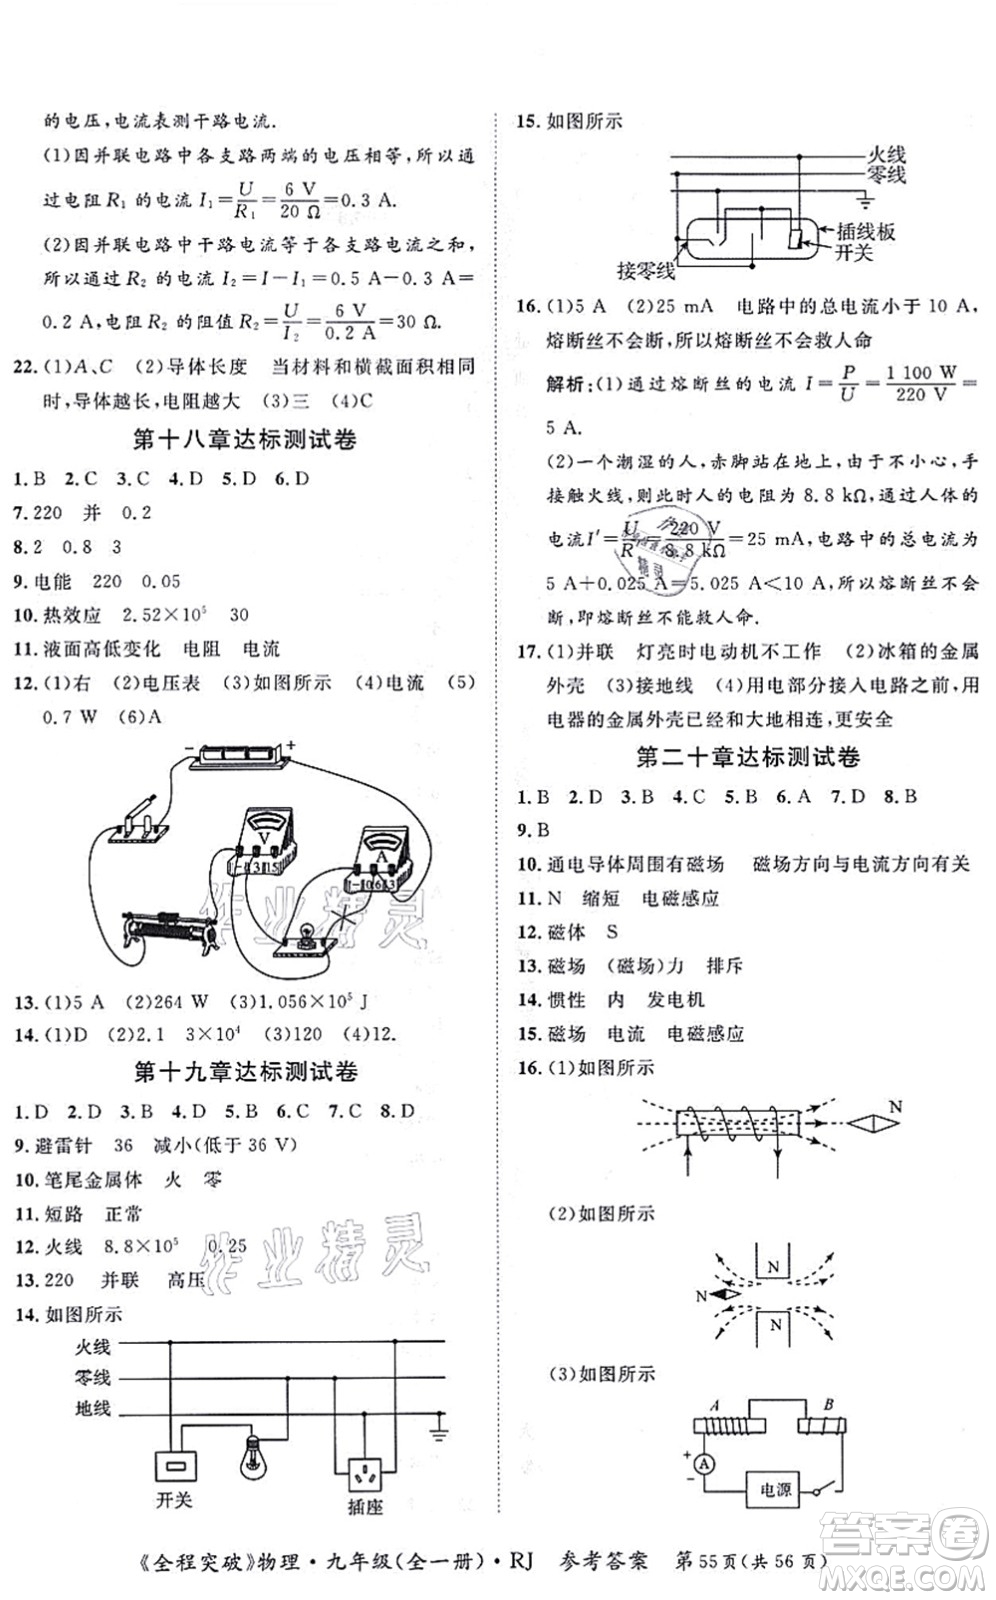 的电压,电流表测干路电流.
(1)因并联电路中各支路两端的电压相等,所以通
过电阻 R₁ 的电流 I₁=U/R₁=6 V/20 Ω=0.3 A.
(2)因并联电路中干路电流等于各支路电流之和,
所以通过 R₂ 的电流 I₂=I-I₁=0.5 A-0.3 A=
0.2 A,电阻 R₂ 的阻值 R₂=U/I₂=6 V/0.2 A=30 Ω.
22.(1)A、C (2)导体长度 当材料和横截面积相同
时,导体越长,电阻越大 (3)三 (4)C
第十八章达标测试卷
1.B 2.C 3.C 4.D 5.D 6.D
7.220 并 0.2
8.2 0.8 3
9.电能 220 0.05
10.热效应 2.52×10⁵ 30
11.液面高低变化 电阻 电流
12.(1)右 (2)电压表 (3)如图所示 (4)电流 (5)
0.7 W (6)A
- +
V
-0.6 3
A
13.(1)5 A (2)264 W (3)1.056×10⁵ J
14.(1)D (2)2.1 3×10⁴ (3)120 (4)12.
第十九章达标测试卷
1.D 2.D 3.B 4.D 5.B 6.C 7.C 8.D
9.避雷针 36 减小(低于 36 V)
10.笔尾金属体 火 零
11.短路 正常
12.火线 8.8×10⁵ 0.25
13.220 并联 高压
14.如图所示
火线
零线
地线
开关
插座
15.如图所示
火线
零线
插线板
开关
接零线
16.(1)5 A (2)25 mA 电路中的总电流小于 10 A,
熔断丝不会断,所以熔断丝不会救人命
解析:(1)通过熔断丝的电流 I=P/U=1 100 W/220 V=
5 A.
(2)一个潮湿的人,赤脚站在地上,由于不小心,手
接触火线,则此时人的电阻为 8.8 kΩ,通过人体的
电流I′=U/R=220 V/8.8 kΩ=25 mA,电路中的总电流为
5 A+0.025 A=5.025 A<10 A,所以熔断丝不会
断,即熔断丝不能救人命.
17.(1)并联 灯亮时电动机不工作 (2)冰箱的金属
外壳 (3)接地线 (4)用电部分接入电路之前,用
电器的金属外壳已经和大地相连,更安全
第二十章达标测试卷
1.B 2.D 3.B 4.C 5.B 6.A 7.D 8.B
9.B
10.通电导体周围有磁场 磁场方向与电流方向有关
11.N 缩短 电磁感应
12.磁体 S
13.磁场 (磁场)力 排斥
14.惯性 内 发电机
15.磁场 电流 电磁感应
16.(1)如图所示
N
(2)如图所示
N
N
N
(3)如图所示
A B
+
A
-
电源
《全程突破》物理·九年级(全一册)·RJ 参考答案 第55页(共56页)
作业精灵
作业精灵
答案圈
MXQE.COM